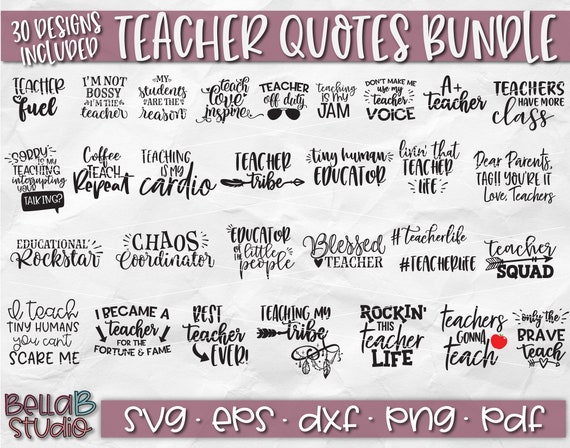 30 DESIGNS
INCLUDED
TEACHER QUOTES BUNDLE
TEACHER
fuel
I'M NOT
BOSSY
I'M THE
teacher
MY
students
ARE THE
reason
teach
love
inspire
TEACHER
off duty
teaching
IS MY
JAM
DON'T MAKE ME
use my
teacher
VOICE
A+
teacher
TEACHERS
HAVE MORE
class
SORRY
is my
TEACHING
interrupting
YOUR
TALKING?
Coffee
TEACH
Repeat
TEACHING
IS MY
cardio
TEACHER
tribe
tiny human
EDUCATOR
livin' that
TEACHER
LIFE
Dear Parents,
TAG!! YOU'RE IT
Love, Teachers
EDUCATIONAL
Rockstar
CHAOS
Coordinator
EDUCATOR
OF THE little
people
Blessed
TEACHER
#teacherlife
#TEACHERLIFE
teacher
SQUAD
I teach
TINY HUMANS
you can't
SCARE ME
I BECAME A
teacher
FOR THE
FORTUNE & FAME
BEST
teacher
EVER!
TEACHING MY
tribe
ROCKIN'
THIS
TEACHER
LIFE
teachers
GONNA
teach
only the
BRAVE
teach
BellaB
Studio
SVG · EPS · DXF · PNG · PDF